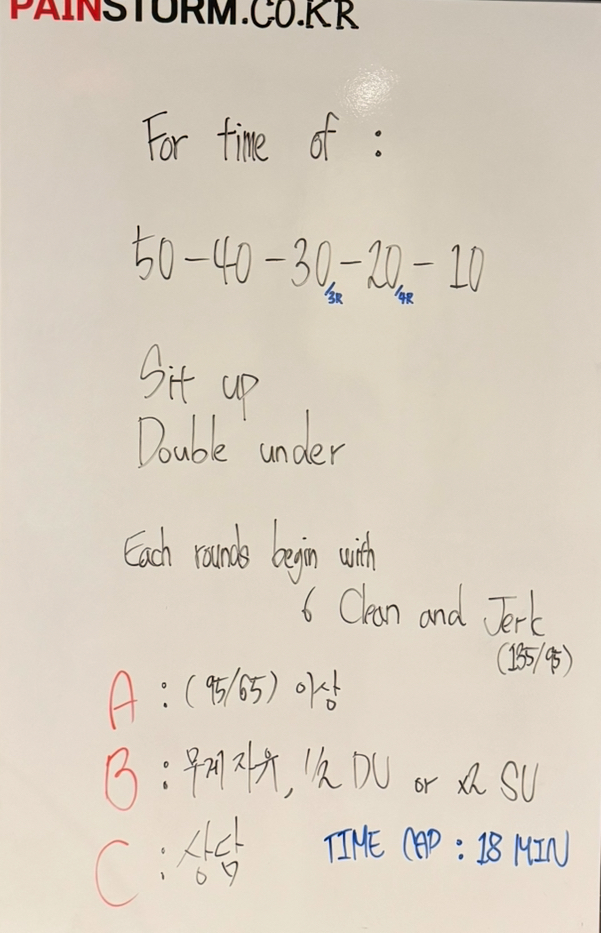 PAINSTORM.CO.KR
For time of :
50-40-30-20-10
/3R /4R
Sit up
Double under
Each rounds begin with
6 Clean and Jerk
(135/95)
A : (95/65) 이상
B : 무게 자유, 1/2 DU or x2 SU
C : 상담
TIME CAP : 18 MIN